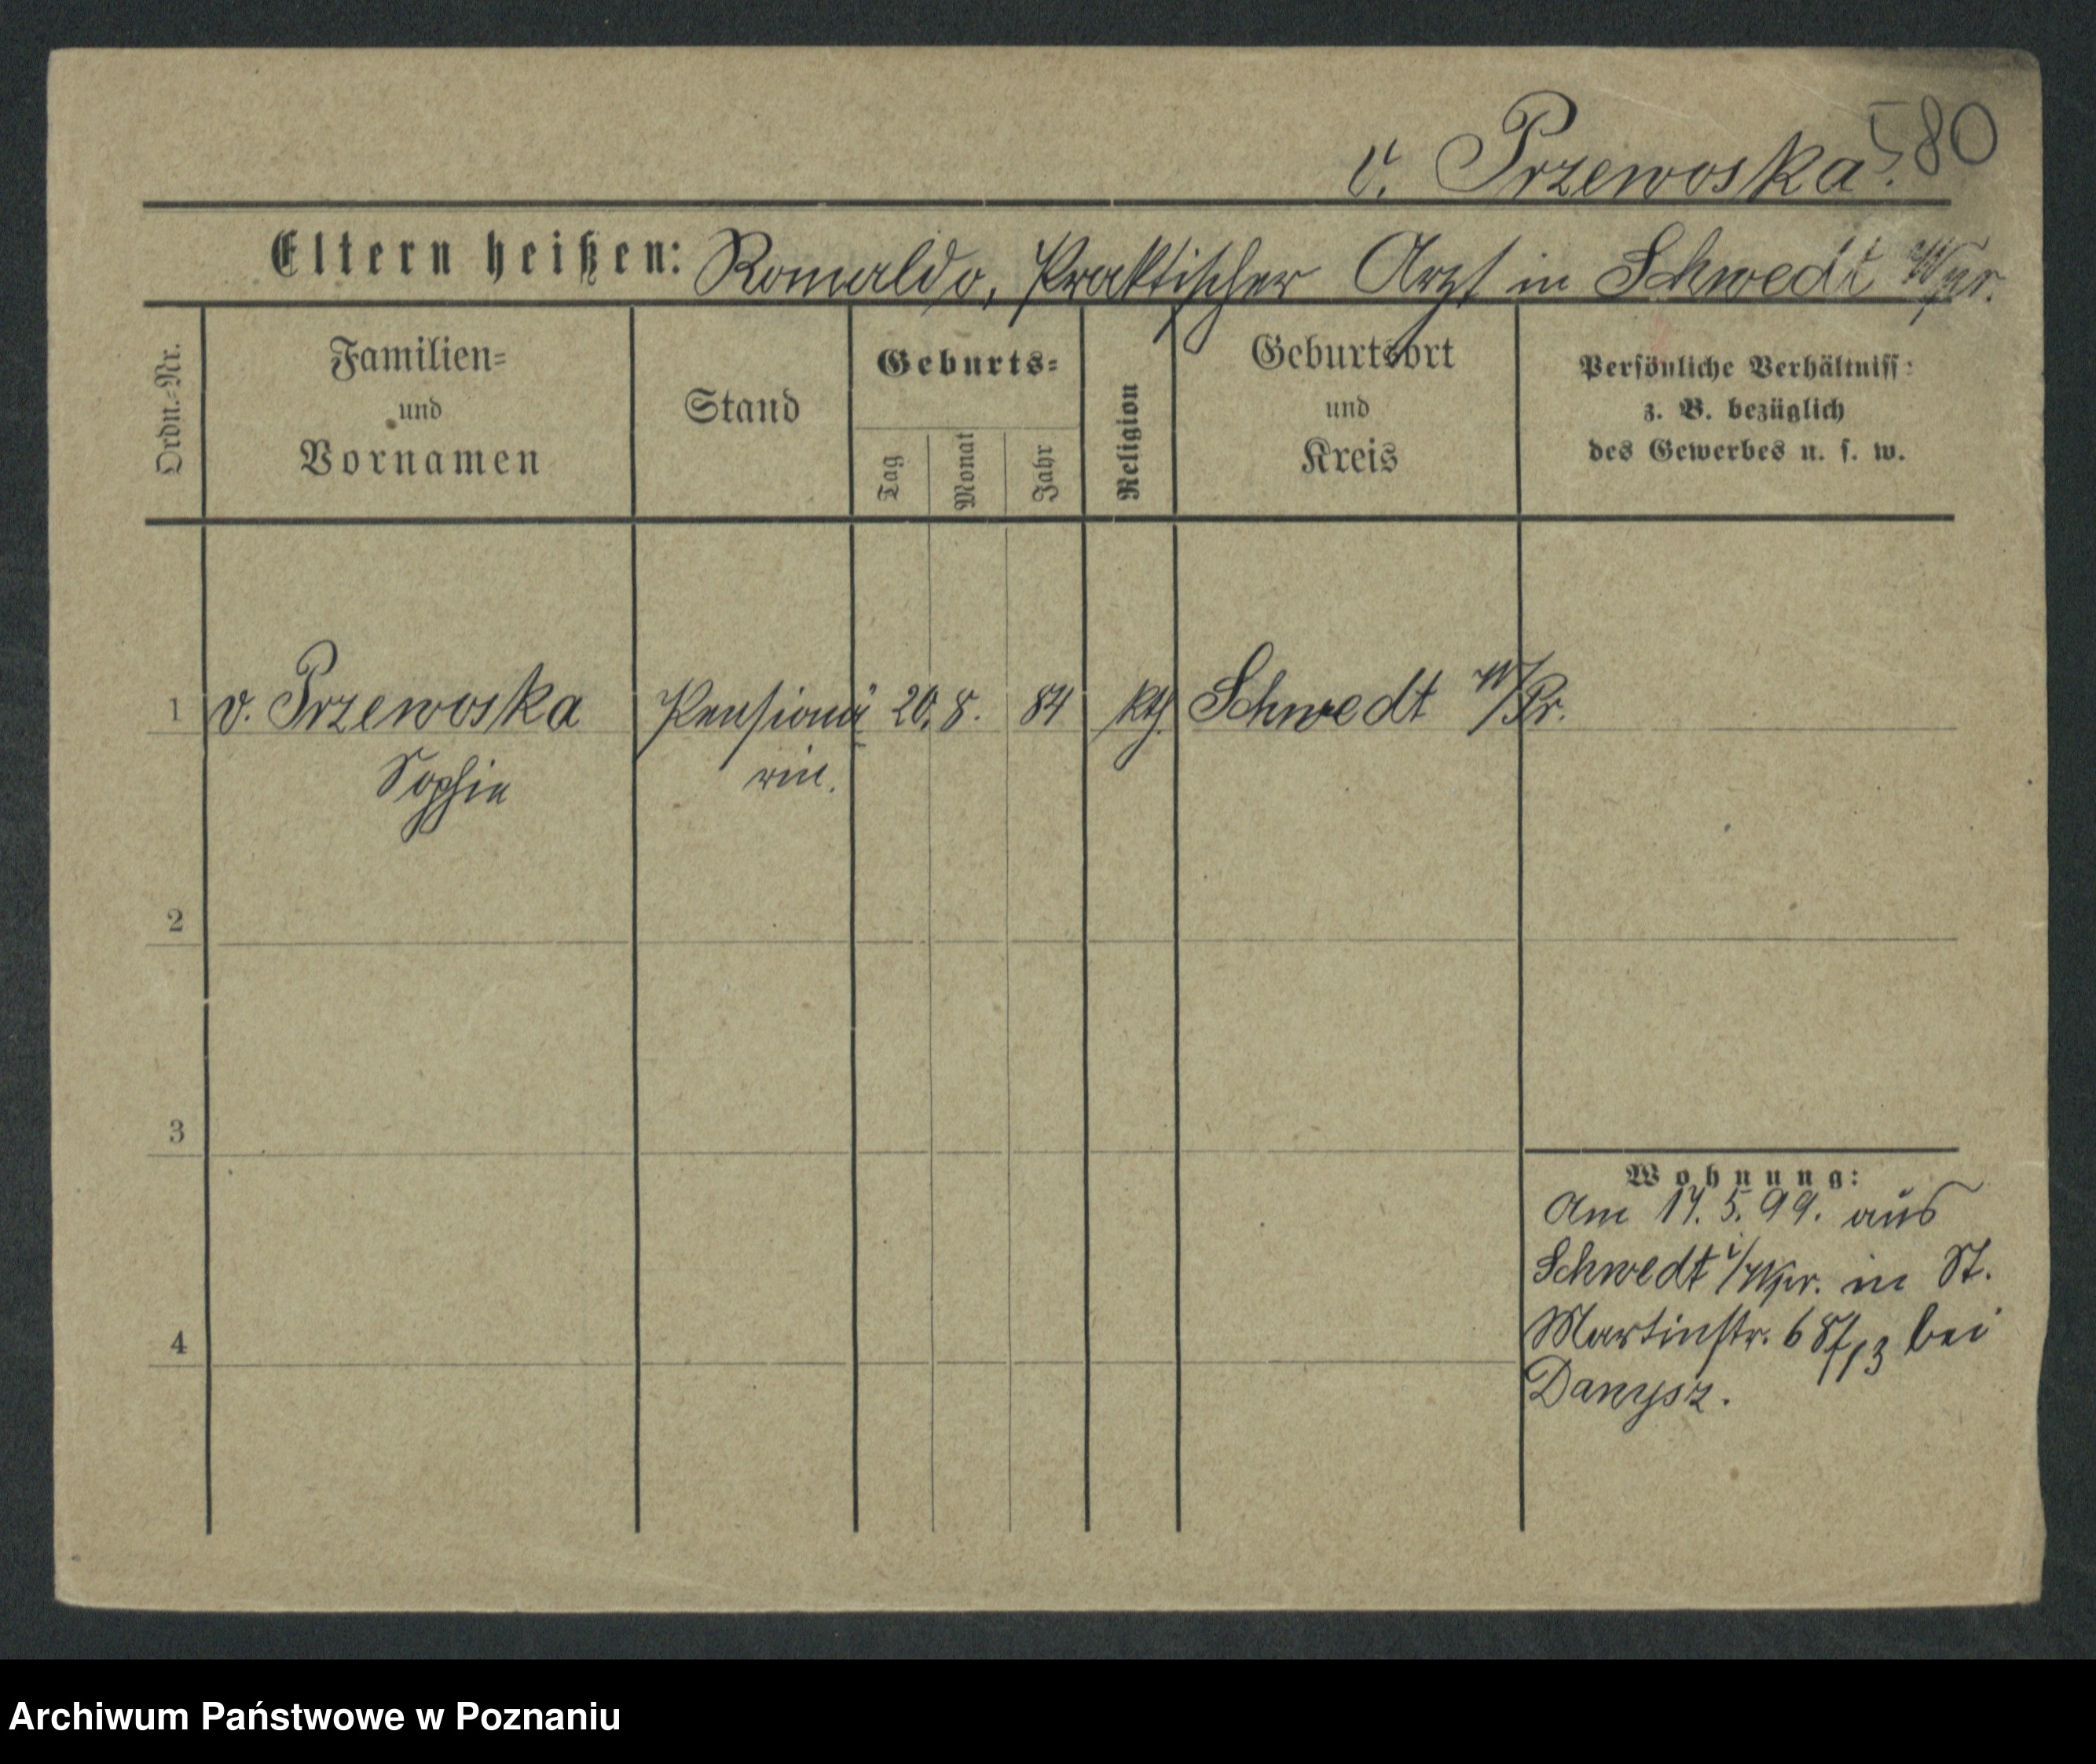 580
v. Przewoska.
Eltern heißen: Romaldo, Praktischer Arzt in Schwedt Wpr.
Ordn.-Nr.
Familien-
und
Vornamen
Stand
Geburts-
Tag
Monat
Jahr
Religion
Geburtsort
und
Kreis
Persönliche Verhältniss-
z. B. bezüglich
des Gewerbes u. s. w.
1 v. Przewoska Pensionä 20. 8. 84 kth. Schwedt W/Pr.
Sophie rin.
2
3
4
Wohnung:
Am 17. 5. 99. aus
Schwedt i/Wpr. in St.
Martinstr. bei
Danysz.
Archiwum Państwowe w Poznaniu